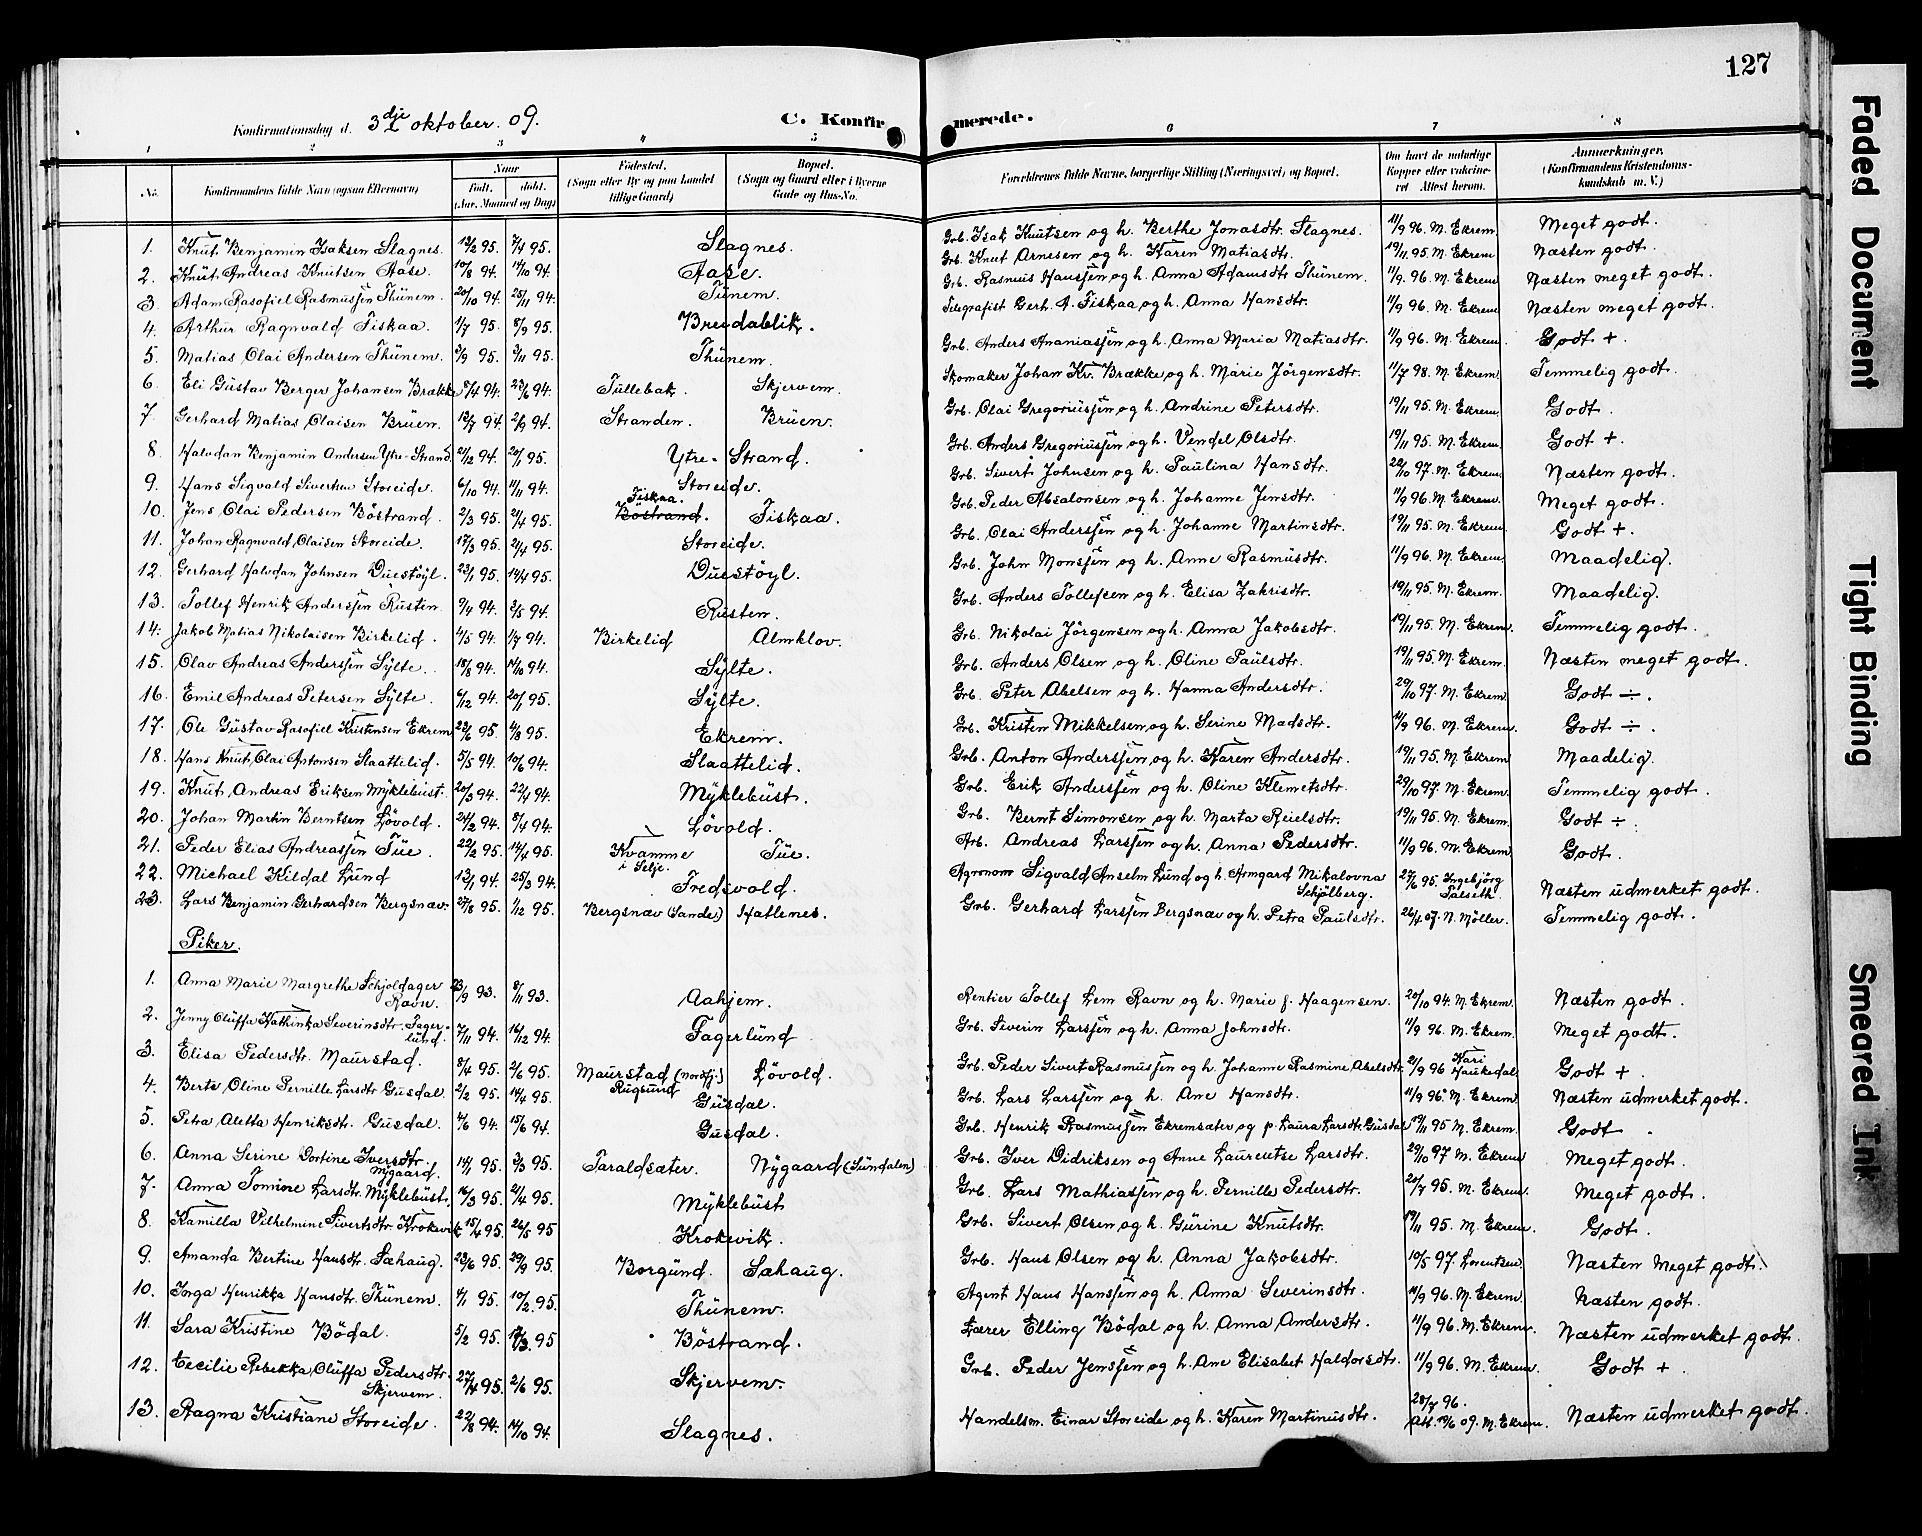 127
Konfirmationsdag d. 3dje oktober. 09. C. Konfirmerede.
1 2 3 4 5 6 7 8
No. Konfirmandens fulde Navn (ogsaa Efternavn) Naar Födt. döbt. (Aar, Maaned og Dag) Födested. (Sogn eller By og paa Landet tillige Gaard) Bopæl. (Sogn og Gaard eller i Byerne Gade og Hus-No. Forældrenes fulde Navne, borgerlige Stilling (Næringsvei) og Bopæl. Om havt de naturlige Kopper eller vakcineret Attest herom. Anmærkninger. (Konfirmandens Kristendomskundskab m. V.)
1. Knut Benjamin Isaksen Slagnes. 13/2 95. 7/4 95. Slagnes. Grb. Isak Knutsen og h. Berthe Jonasdtr. Slagnes. 11/9 96. M. Ekrem Meget godt.
2. Knut Andreas Knutsen Aase. 10/8 94. 14/10 94. Aase. Grb. Knut Arnesen og h. Karen Matiasdtr. 19/11 95. M. Ekrem Næsten godt.
3. Adam Rasofiel Rasmussen Thunem. 20/10 94. 25/11 94. Tunem. Grb. Rasmus Hanssen og h. Anna Adamsdtr Thunem. 11/9 96. M. Ekrem Næsten meget godt.
4. Arthur Ragnvald Fiskaa. 1/7 95. 8/9 95. Breidablik. Telegrafist Gerh. A. Fiskaa og h. Anna Hansdtr. 11/9 96. M. Ekrem Næsten meget godt.
5. Matias Olai Andersen Thunem. 3/9 95. 3/11 95. Thunem. Grb. Anders Ananiassen og h. Anna Maria Matiasdtr. 11/9 96. M. Ekrem. Godt +.
6. Eli Gustav Berger Johansen Brække 8/4 94. 23/6 94. Tullebak. Skjervem. Skomaker Johan Kr. Brække og h. Marie Jörgensdtr. 11/7 98. M. Ekrem. Temmelig godt.
7. Gerhard Matias Olaisen Bruen. 13/7 94. 2/9 94. Stranden. Bruen. Grb. Olai Gregoriussen og h. Andrine Petersdtr. 19/11 95. M. Ekrem. Godt.
8. Halvdan Benjamin Andersen Ytre-Strand 21/12 94. 20/1 95. Ytre-Strand. Grb. Anders Gregoriussen og h. Vendel Olsdtr. 19/11 95. M. Ekrem. Godt +.
9. Hans Sigvald Sivertsen Storeide. 6/10 94. 11/11 94. Storeide. Grb. Sivert Johnsen og h. Paulina Hansdtr. 22/10 97. M. Ekrem. Næsten godt.
10. Jens Olai Pedersen Böstrand. 2/3 95. 21/4 95. Fiskaa. Böstrand. Fiskaa. Grb. Peder Absalonsen og h. Johanne Jensdtr. 11/9 96. M. Ekrem. Meget godt.
11. Johan Ragnvald Olaisen Storeide. 17/3 95. 21/4 95. Storeide. Grb. Olai Anderssen og h. Johanne Martinsdtr. 19/11 95. M. Ekrem. Godt +.
12. Gerhard Halvdan Johnsen Duestöyl. 23/1 95. 14/4 95. Duestöyl. Grb. John Monssen og h. Anne Rasmusdtr. 11/9 96. M. Ekrem. Maadelig.
13. Tollef Henrik Anderssen Rusten 9/11 94. 3/5 94. Rusten. Grb. Anders Tollefsen og h. Elisa Zakrisdtr. 19/11 95. M. Ekrem. Maadelig.
14. Jakob Matias Nikolaisen Birkelid. 4/5 94. 1/7 94. Birkelid Almklov. Grb. Nikolai Jörgensen og h. Anna Jakobsdtr. 19/11 95. M. Ekrem. Temmelig godt.
15. Olav Andreas Anderssen Sylte. 18/8 94. 14/10 94. Sylte. Grb. Anders Olsen og h. Oline Paulsdtr. 19/11 95. M. Ekrem. Næsten meget godt.
16. Emil Andreas Petersen Sylte. 6/12 94. 20/1 95. Sylte. Grb. Peter Abelsen og h. Hanna Andersdtr. 29/10 97. M. Ekrem. Godt ÷.
17. Ole Gustav Rasofiel Kristensen Ekrem 22/6 95. 4/8 95. Ekrem. Gr. Kristen Mikkelsen og h. Serine Madsdtr. 11/9 96. M. Ekrem. Godt ÷
18. Hans Knut Olai Antonsen Slaattelid. 5/5 94. 10/6 94. Slaattelid. Grb. Anton Anderssen og h. Karen Andersdtr. 19/11 95. M. Ekrem Maadelig.
19. Knut Andreas Eriksen Myklebust. 20/3 94. 22/4 94. Myklebust. Grb. Erik Anderssen og h. Oline Klemetsdtr. 29/10 97. M. Ekrem. Temmelig godt.
20. Johan Martin Berntsen Lövold. 24/2 94. 8/4 94. Lövold. Grb. Bernt Simonsen og h. Marta Reielsdtr. 19/11 95. M. Ekrem. Godt ÷
21. Peder Elias Andreassen Tue. 22/2 95. 14/4 95. Kvamme i Selje. Tue. Arb. Andreas Larssen og h. Anna Pedersdtr. 11/9 96. M. Ekrem. Godt.
22. Michael Kildal Lund 13/1 94. 25/3 94. Fredsvold. Agronom Sigvald Anselm Lund og h. Armgard Mikalovna Schjölberg. 27/6 95. Ingebjörg Talseth. Næsten udmerket godt.
23. Lars Benjamin Gerhardsen Bergsnæv. 27/8 95. 1/12 95. Bergsnæv (Sande) Hatlenes. Grb. Gerhard Larssen Bergsnæv og h. Petra Paulsdtr. 26/4 07. N. Möller. Temmelig godt.
Piker.
1. Anna Marie Margrethe Schjoldager Ravn. 23/9 93. 8/11 93. Aahjem. Rentier Tollef Lem Ravn og h. Marie f. Haagensen. 20/10 94. M. Ekrem. Næsten godt.
2. Jenny Oluffa Kathinka Severinsdtr. Fagerlund. 7/11 94. 16/12 94. Fagerlund Grb. Severin Larssen og h. Anna Johnsdtr. 11/9 96. M. Ekrem. Meget godt.
3. Elisa Pedersdtr. Maurstad. 8/4 95. 2/6 95. Maurstad (Nordfj.) Rugsund Lövold. Grb. Peder Sivert Rasmussen og h. Johanne Rasmine Abelsdtr. 21/9 96 Kari Haukedal Godt +.
4. Berte Oline Pernille Larsdtr Gusdal. 2/2 95. 14/4 95. Gusdal. Grb. Lars Larssen og h. Ane Hansdtr. 11/9 96. M. Ekrem Næsten udmerket godt.
5. Petra Aletta Henriksdtr. Gusdal. 4/6 94. 15/6 94. Gusdal. Grb. Henrik Rasmussen Ekremsæter og p. Laura Larsdtr. Gusdal 19/11 95 M. Ekrem. Godt.
6. Anna Serine Dortine Iversdtr. Nygaard. 14/1 95. 3/3 95. Taraldsæter. Nygaard (Sundalen) Grb. Iver Didriksen og Anne Laurentse Larsdtr. 29/10 97 M. Ekrem Meget godt.
7. Anna Tomine Larsdtr. Myklebust. 16/3 95. 21/4 95. Myklebust Grb. Lars Mathiassen og h. Pernille Pedersdtr. 20/7 95. M. Ekrem. Meget godt.
8. Kamilla Vilhelmine Sivertsdtr. Krokevik 15/4 95. 26/5 95 Krokevik. Grb. Sivert Olsen og h. Gurine Knutsdtr. 19/11 95. M. Ekrem. Godt.
9. Amanda Bertine Hansdtr. Sæhaug. 23/6 95. 29/9 95. Borgund. Sæhaug. Grb. Hans Olsen og h. Anna Jakobsdtr. 10/5 97. Lorentzen. Næsten meget godt.
10. Inga Henrikka Hansdtr. Thunem. 4/1 95. 10/2 95. Thunem. Agent Hans Hanssen og h. Anna Severinsdtr. 11/9 96. M. Ekrem. Næsten godt.
11. Sara Kristine Bödal. 5/2 95. 17/3 95 Böstrand. Lærer Elling Bödal og h. Anna Andersdtr. 11/9 96. M. Ekrem. Næsten udmerket godt.
12. Cecilie Rebekka Oluffa Pedersdtr. Skjervem. 27/4 95. 2/6 95. Skjervem. Grb. Peder Jenssen og h. Ane Elisabet Haldorsdtr. 11/9 96. M. Ekrem. Godt +.
13. Ragna Kristiane Storeide. 22/8 94. 14/10 94. Slagnes. Handelsm. Einar Storeide og h. Karen Martinusdtr. 28/7 96. Att. 19/6 09. M. Ekrem. Næsten udmerket godt.
Faded Document
Tight Binding
Smeared Ink